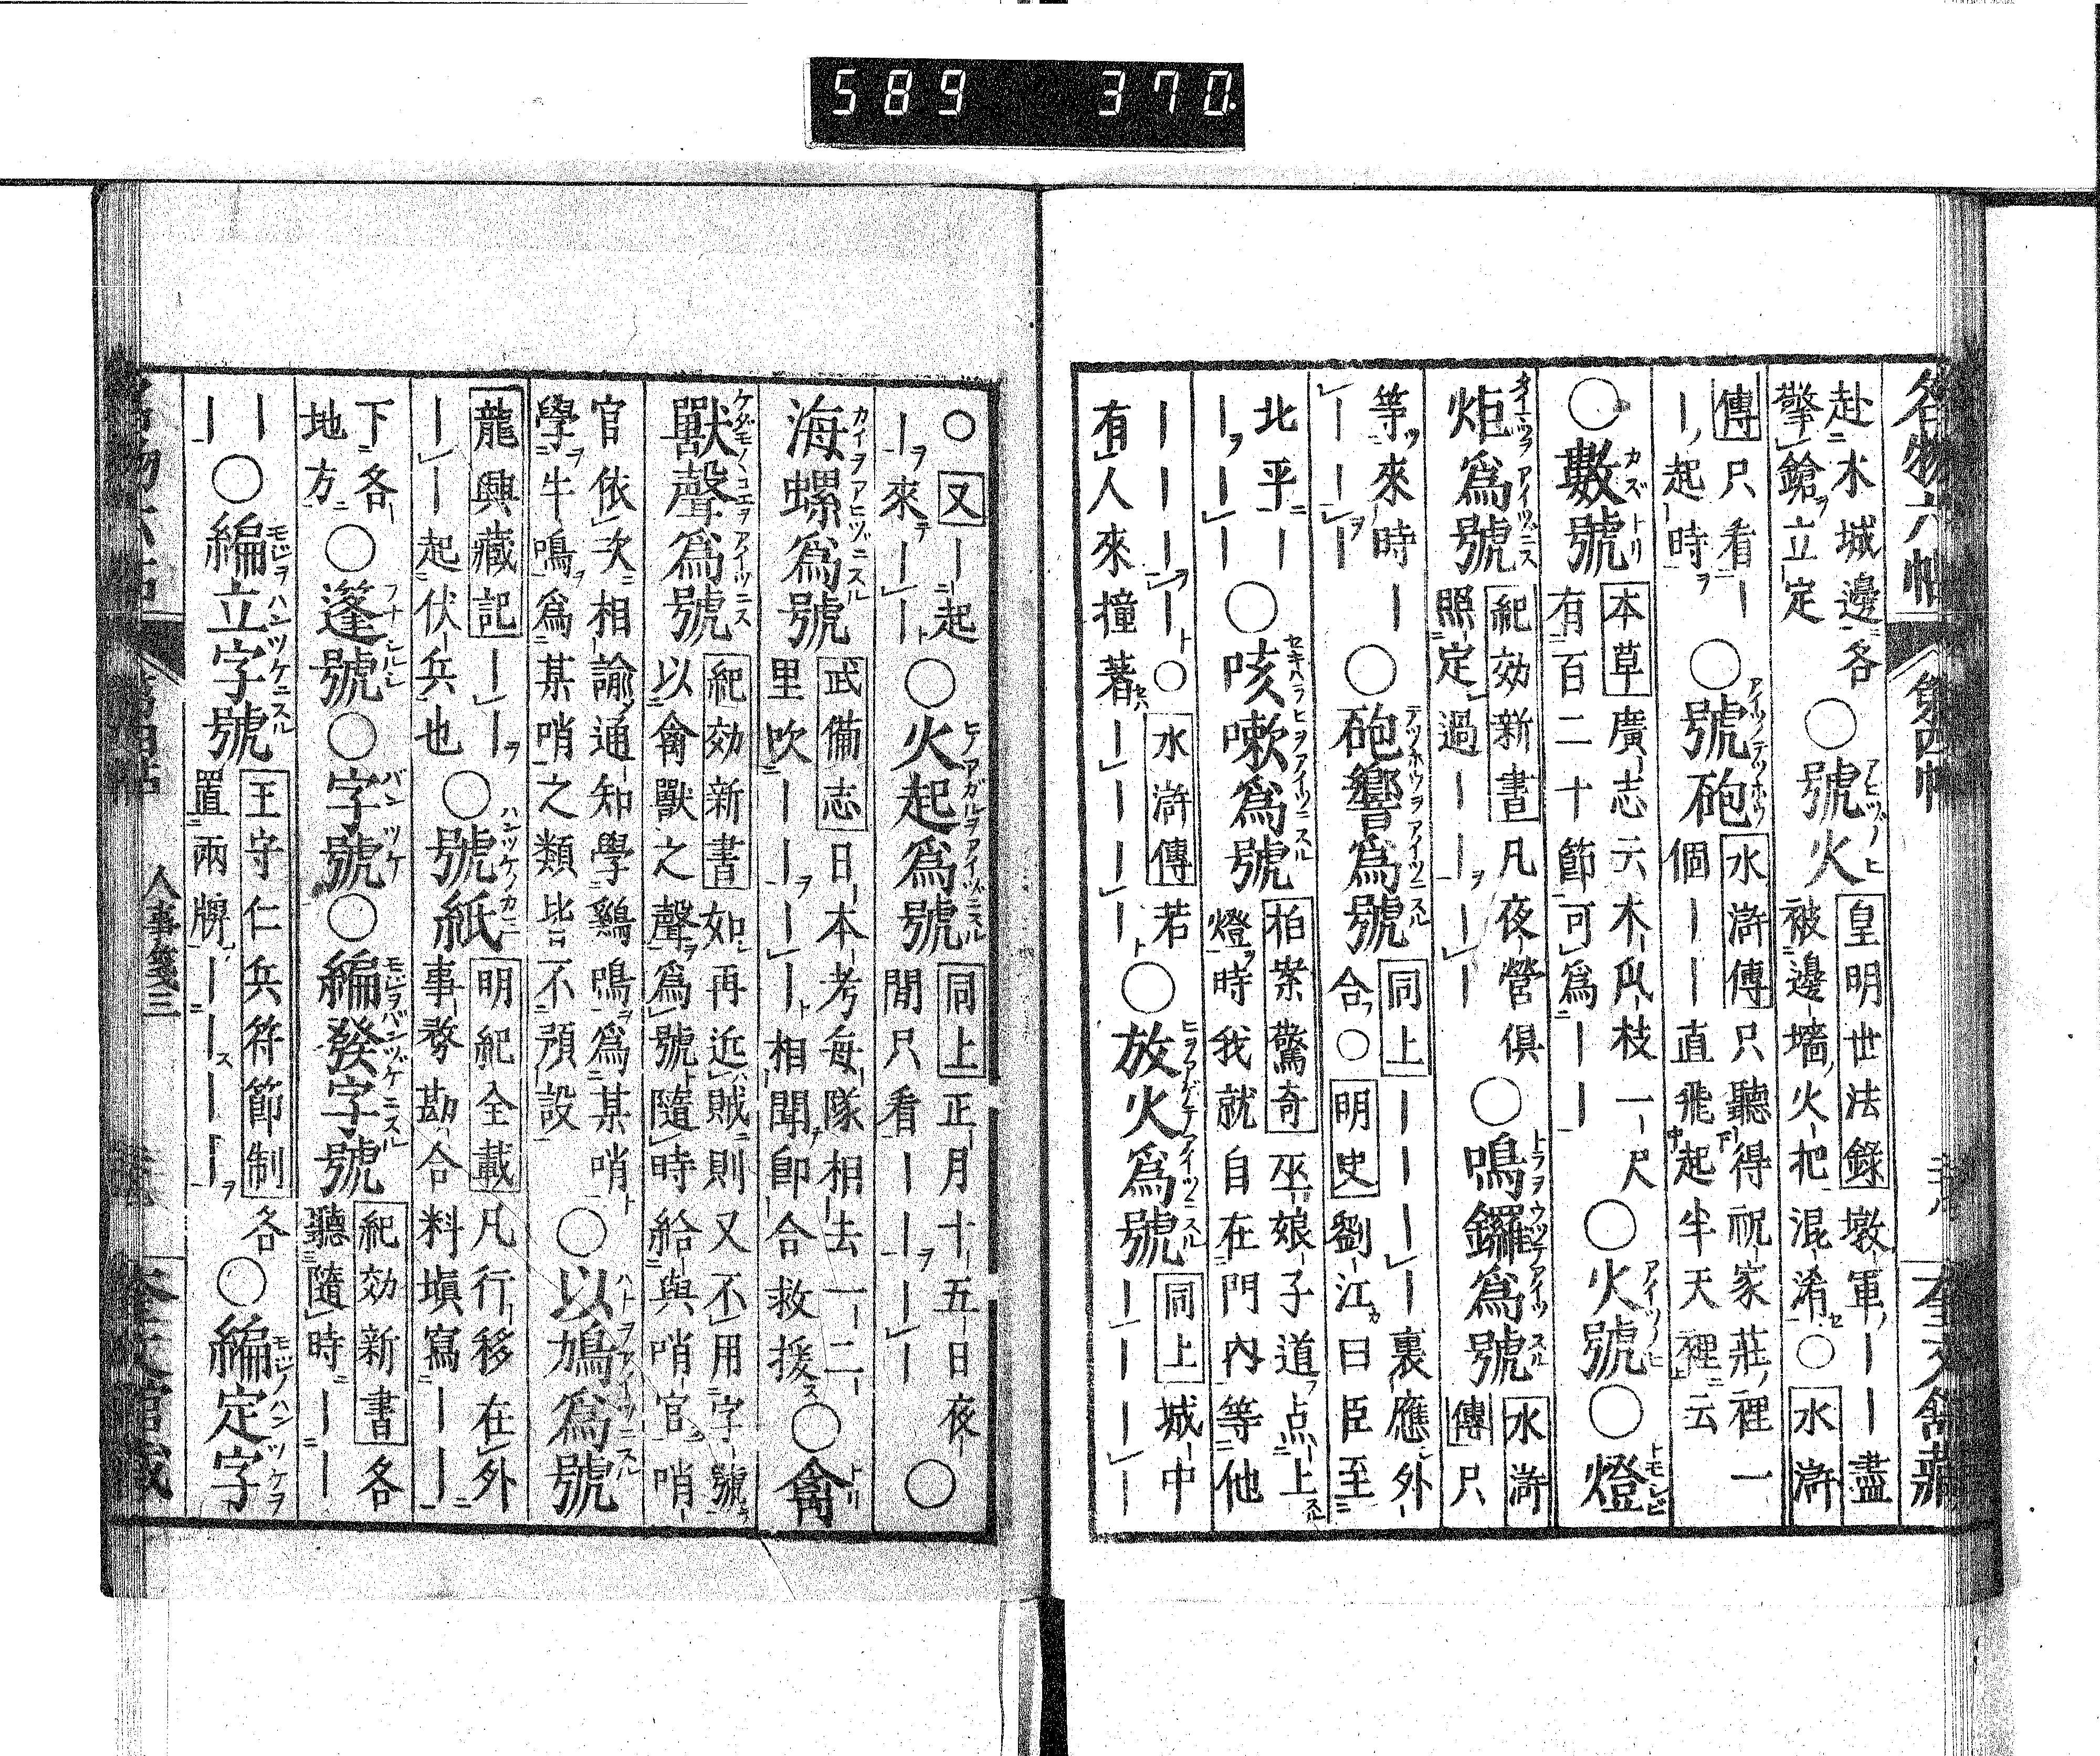 名物六帖 第四帖 奎文館藏
赴木城邊各擎鎗立定○號火皇明世法録墩軍｜｜盡被邊墻火把混淆○水滸
傳只看｜｜起時○號砲水滸傳只聽得祝家莊裡一個｜｜直飛起半天裡云
○數號本草廣志云木瓜枝一尺有百二十節可爲｜｜○火號○燈
炬爲號紀効新書凡夜營俱照定過｜｜｜｜○鳴鑼爲號水滸傳只
等來時｜｜｜｜○砲響爲號同上｜｜｜｜裏應外合○明史劉江曰臣至
北平｜｜｜｜○咳嗽爲號柏案驚奇巫娘子道点上燈時我就自在門内等他
｜｜｜｜○水滸傳若有人來撞著｜｜｜｜○放火爲號同上城中｜｜｜｜
○又｜起｜來｜｜○火起爲號同上正月十五日夜間只看｜｜｜｜○
海螺爲號武備志日本考毎隊相去一二里吹｜｜｜｜相聞即合救援○禽
獸聲爲號紀効新書如再近賊則又不用字號以禽獸之聲爲號隨時給與哨官哨
官依次相諭通知學鷄鳴爲某哨學牛鳴爲某哨之類皆不預設○以鳩爲號
龍興藏記｜｜｜｜起伏兵也○號紙明紀全載凡行移在外事務勘合料塡寫｜｜
下各地方○篷號○字號○編發字號紀効新書各聽隨時｜｜
｜｜○編立字號王守仁兵符節制各置兩牌｜｜｜｜○編定字
人事箋三